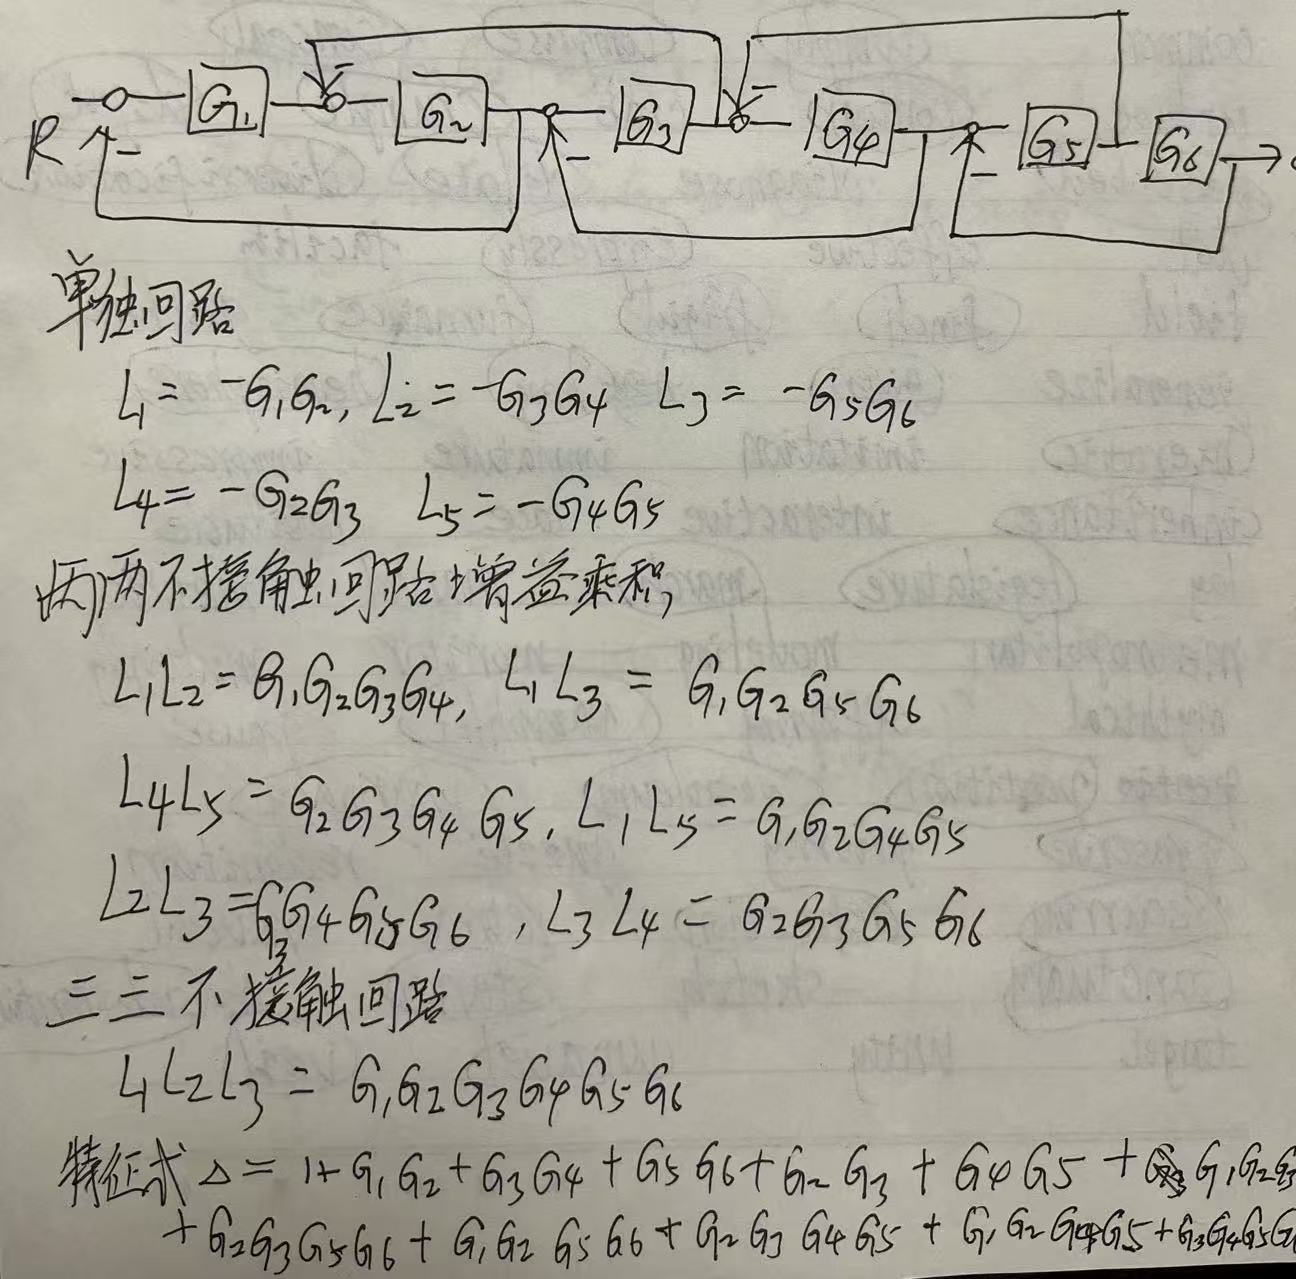 R G₁ G₂ G₃ G₄ G₅ G₆
单独回路
L₁ = -G₁G₂, L₂ = -G₃G₄ L₃ = -G₅G₆
L₄ = -G₂G₃ L₅ = -G₄G₅
两两不接触回路增益乘积
L₁L₂ = G₁G₂G₃G₄, L₁L₃ = G₁G₂G₅G₆
L₄L₅ = G₂G₃G₄G₅, L₁L₅ = G₁G₂G₄G₅
L₂L₃ = G₃G₄G₅G₆, L₃L₄ = G₂G₃G₅G₆
三三不接触回路
L₁L₂L₃ = G₁G₂G₃G₄G₅G₆
特征式 Δ = 1+G₁G₂+G₃G₄+G₅G₆+G₂G₃+G₄G₅+G₁G₂G₃
+G₂G₃G₅G₆+G₁G₂G₅G₆+G₂G₃G₄G₅+G₁G₂G₄G₅+G₃G₄G₅G₆